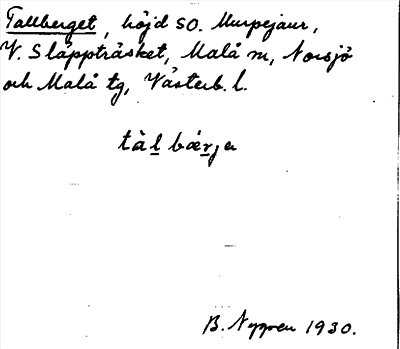 Tallberget, höjd SO. Murpejaur,
V. Släppträsket, Malå m, Norsjö
och Malå tg, Västerb. l.
tàl bærja
B. Nygren 1930.